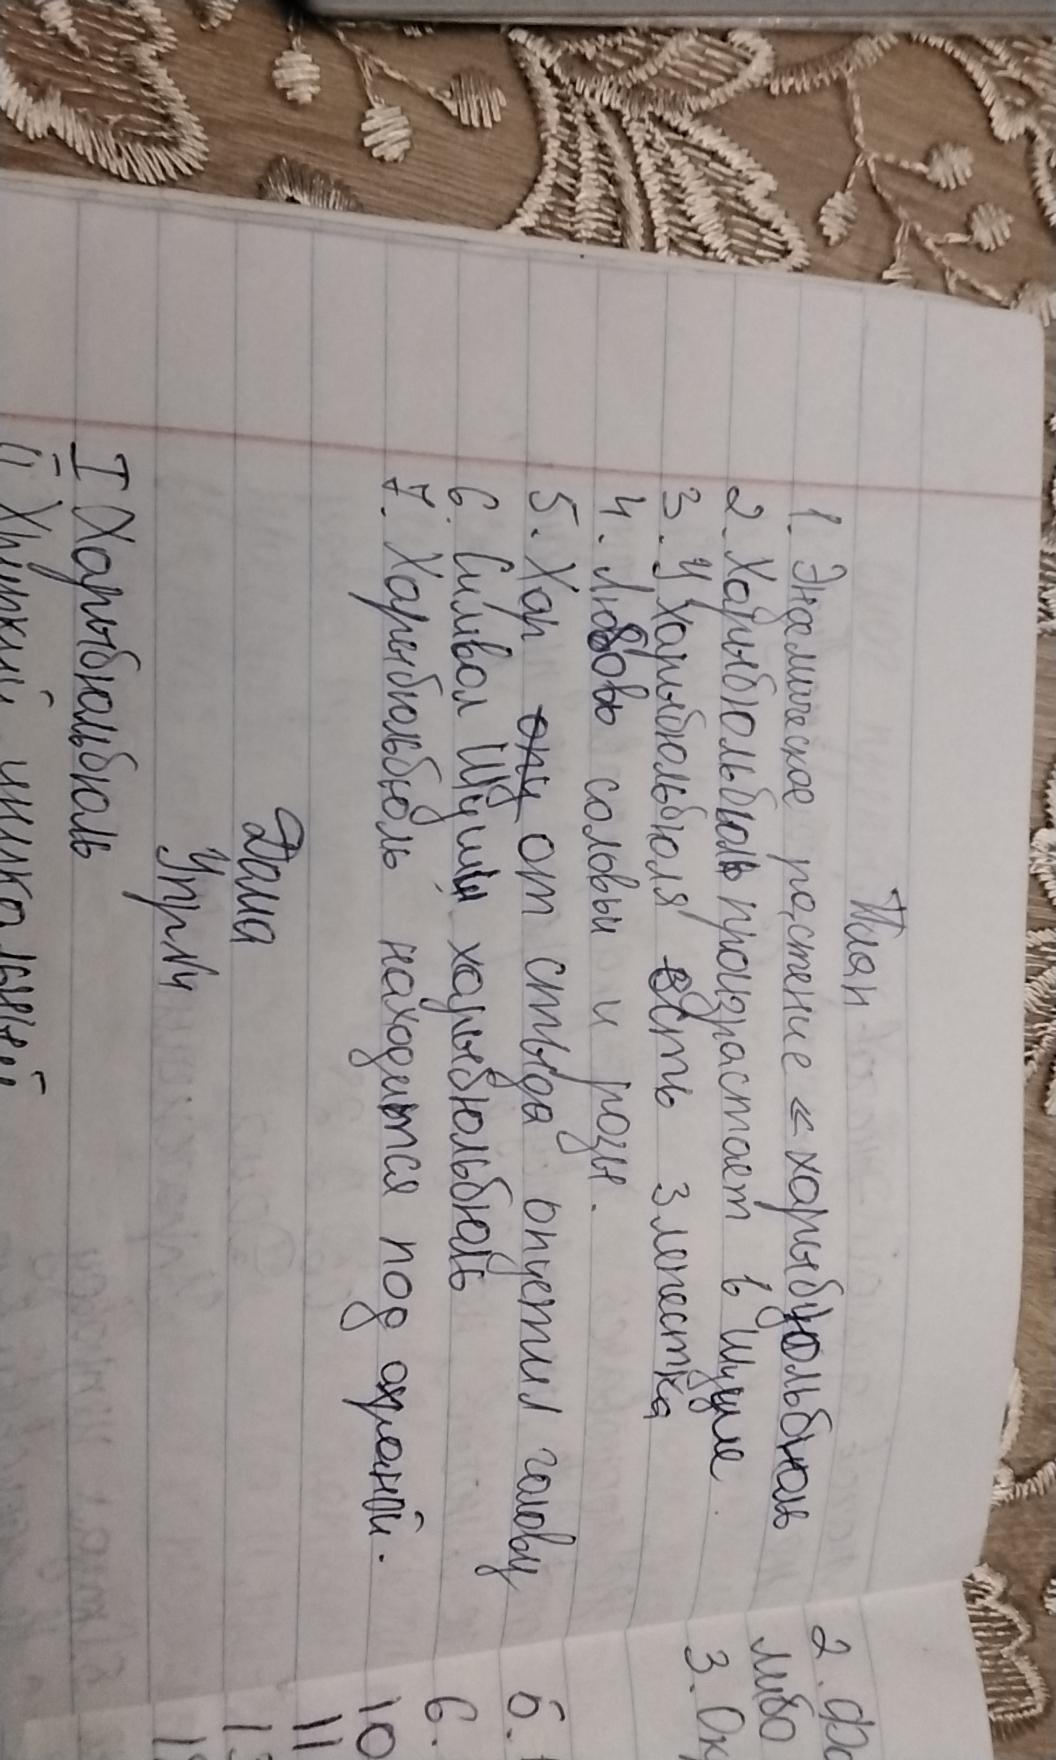 План
1. Эндемическое растение « харыбюльбюль
2. Харыбюльбюль произрастает в Шуше.
3. У харыбюльбюля есть 3 лепестка
4. Любовь соловьи и розы.
5. Хар опу от стыда опустил голову
6. Символ Шуши харыбюльбюль
7. Харыбюльбюль находится под охраной.
Дата
Упр№4
I Харыбюльбюль
II Хрупкий, уникальный
2.
либо
3.
5.
6.
10
11